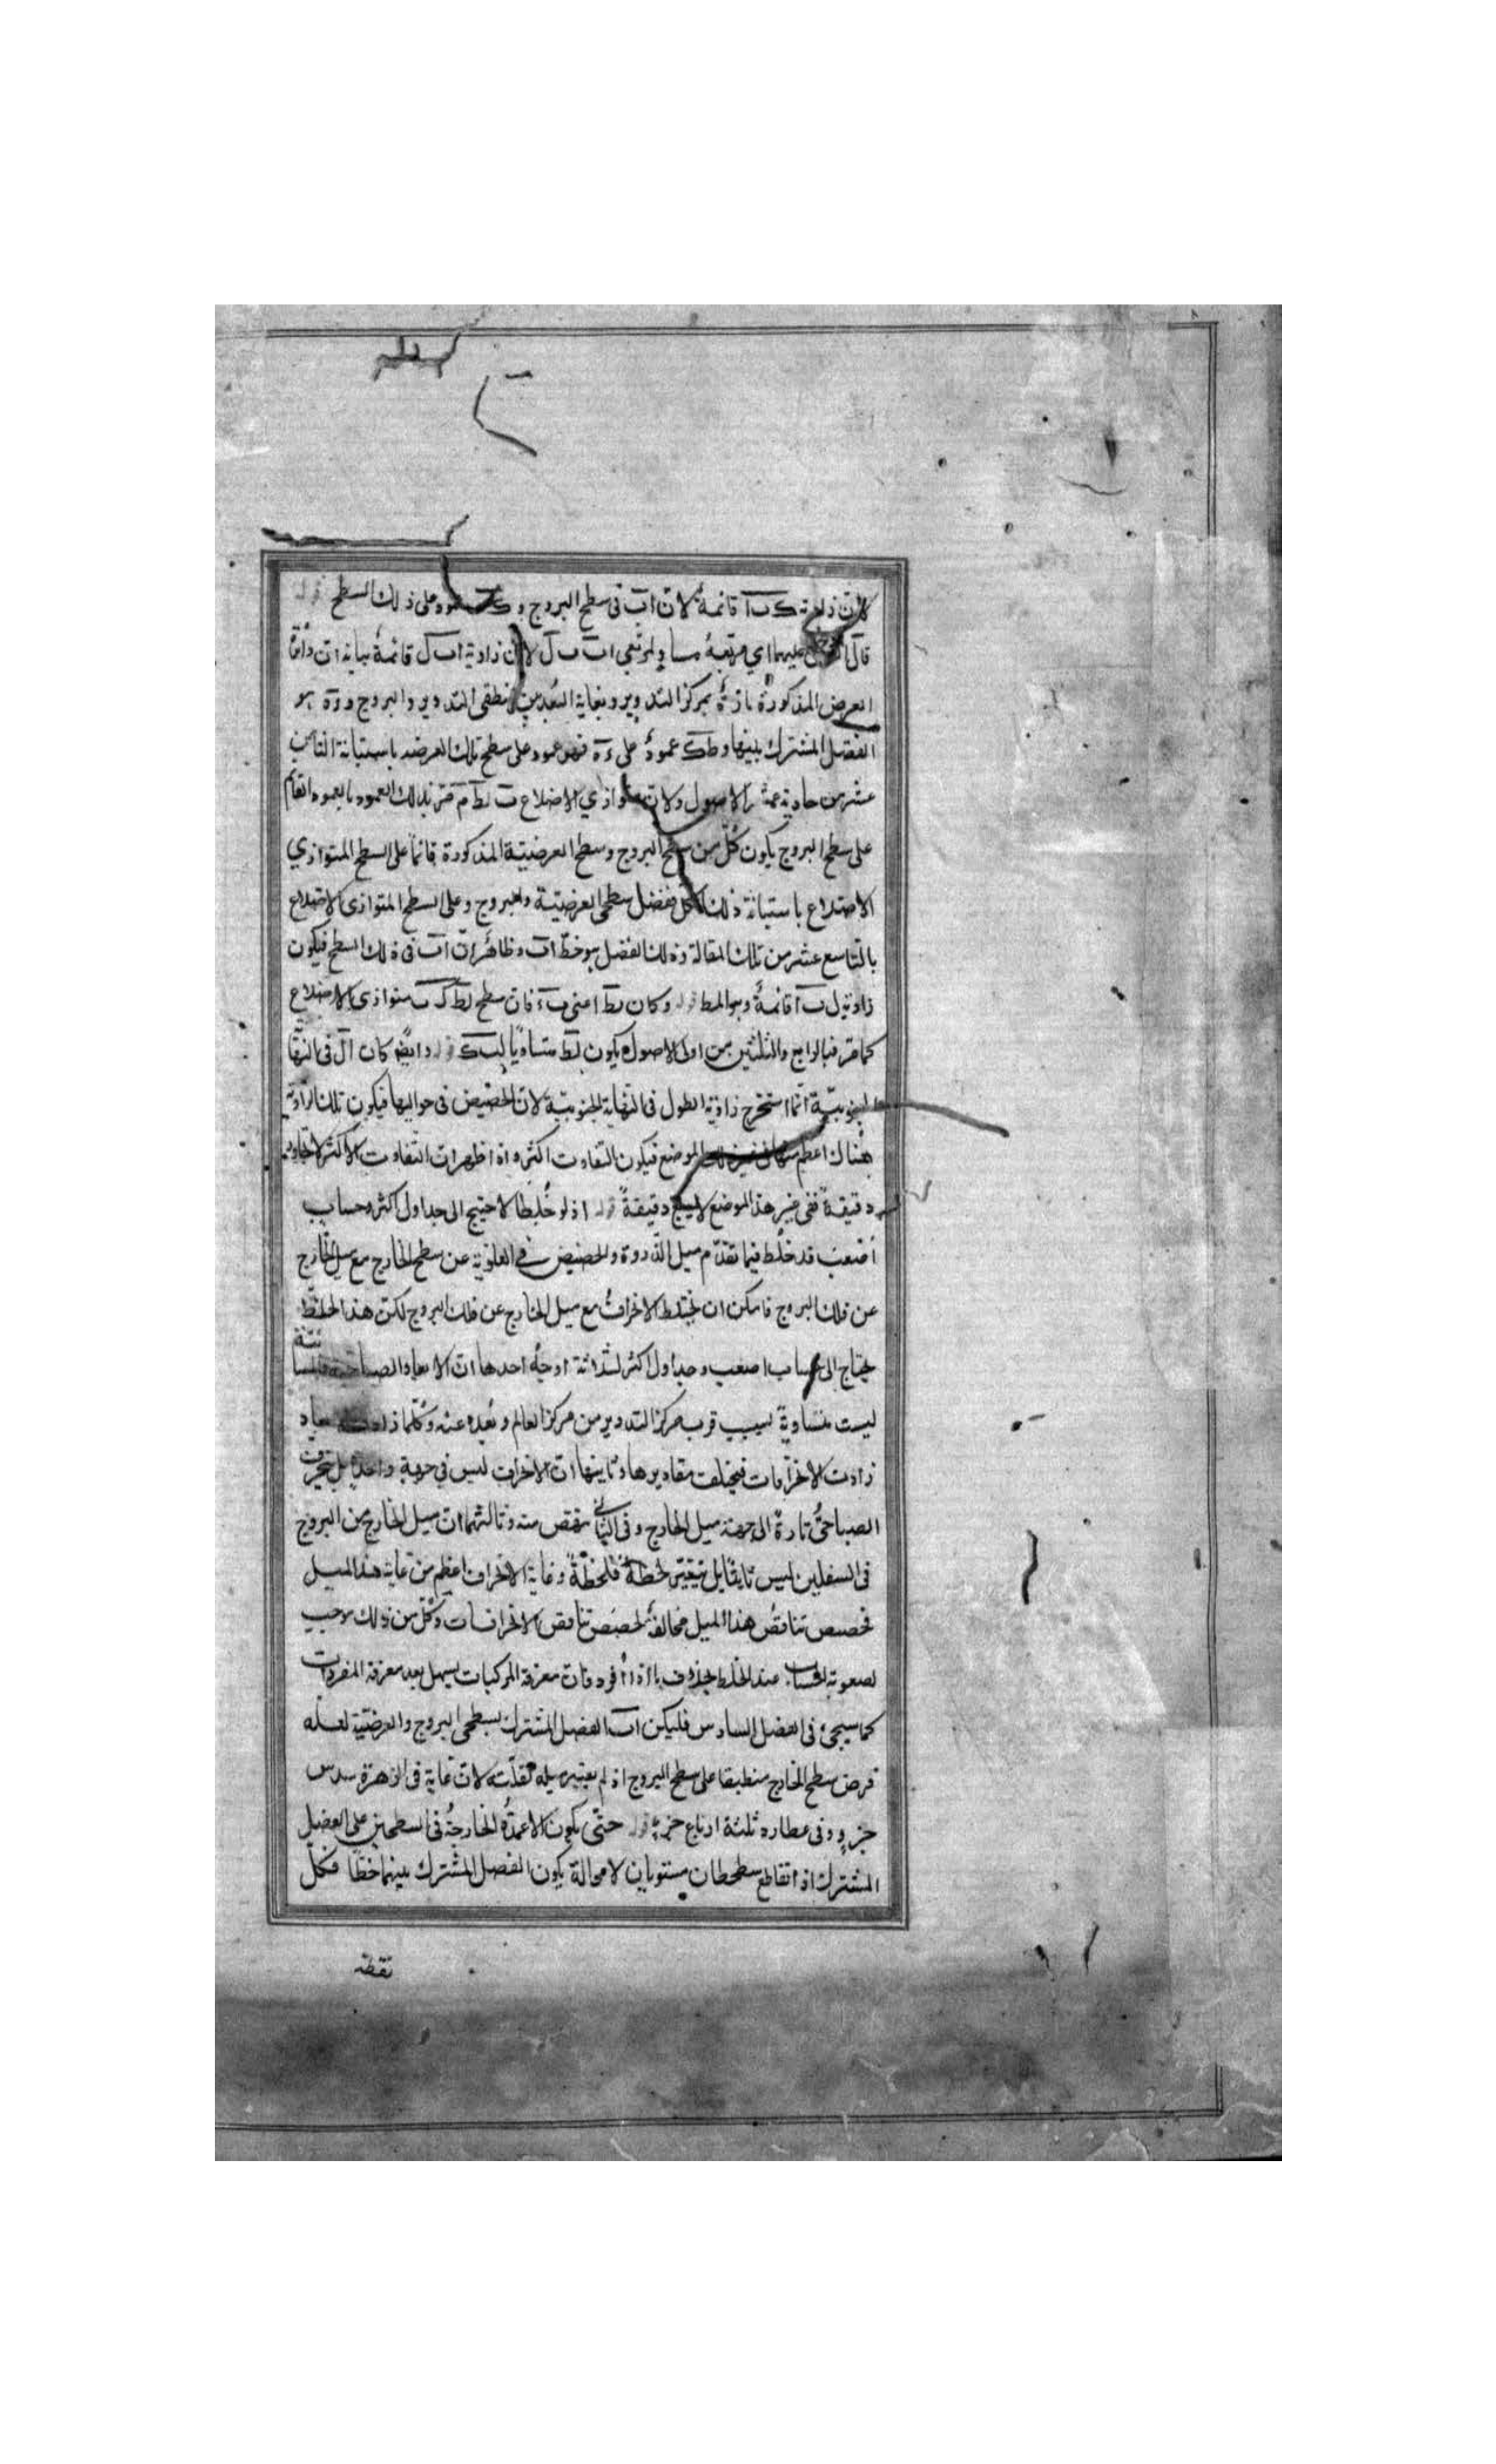 لان زاوية ك ب ا قائمة لان اب فى سطح البروج و عمود على ذلك السطح قوله
قال عليهما اي مربعه مساو لمربعي اب ب ل لان زاوية اب ل قائمة بيانه ان دائرة
العرض المذكورة مارة بمركز التدوير وبغاية البعد بين منطقتى التدوير والبروج و ره هو
الفصل المشترك بينها و ط ك عمود على ءه فهو عمود على سطح تلك العرضية باستبانة الثامن
عشر من حادية عشر الاصول ولان متوازي الاضلاع ب ل ط م مر بذلك العمود بالعمود القائم
على سطح البروج يكون كل من سطح البروج وسطح العرضية المذكورة قائما على السطح المتوازي
الاضلاع باستبانة ذلك الشكل ففضل سطحى العرضية والبروج وعلى السطح المتوازى الاضلاع
بالتاسع عشر من تلك المقالة وذلك الفضل هو خط اب وظاهر ان اب فى ذلك السطح فيكون
زاوية ل ب ا قائمة وهو المط قوله وكان ل ط اعنى ب ء فان سطح ل ط ك ب متوازى الاضلاع
كما مر فبالرابع والثلثين من اولى الاصول يكون ل ط متساويا ل ب ك قوله وايضا كان ال فى النهاية
الجنوبية انما استخرج زاوية الطول فى النهاية الجنوبية لان الحضيض فى حواليها فيكون تلك الزاوية
هناك اعظم منها فى غير ذلك الموضع فيكون التفاوت اكثر واذا ظهر ان التفاوت الاكثر
دقيقة ففى غير هذا الموضع لا يبلغ دقيقة قوله اذ لو خلطا لاحتيج الى جداول اكثر وحساب
اصعب قد خلط فيما تقدم ميل الذروة والحضيض فى العلوية عن سطح الخارج مع ميل الخارج
عن فلك البروج فامكن ان يختلط الانحراف مع ميل الخارج عن فلك البروج لكن هذا الخلط
يحتاج الى حساب اصعب وجداول اكثر لثلثة اوجه احدها ان الابعاد الصباحية والمسائية
ليست متساوية بسبب قرب مركز التدوير من مركز العالم وبعده عنه وكلما زادت الابعاد
زادت الانحرافات فيختلف مقاديرها وثانيها ان الانحراف ليس فى جهة واحدة بل ينحرف
الصباحى تارة الى جهة ميل الخارج وفى الثانى ينقص منه وثالثها ان ميل الخارج من البروج
فى السفليين ليس ثابتا بل يتغير لحظة فلحظة وغاية الانحراف اعظم من غاية هذا الميل
فحصص تناقص هذا الميل مخالفة لحصص تناقص الانحرافات وكل من ذلك موجب
لصعوبة الحساب عند الخلط بخلاف ما اذا افرد فان معرفة المركبات يسهل بعد معرفة المفردات
كما سيجئ فى الفصل السادس فليكن اب الفصل المشترك لسطحى البروج والعرضية لعله
فرض سطح الخارج منطبقا على سطح البروج اذ لم يعتبر ميله لقلته لان غايته فى الزهرة سدس
جزو وفى عطارد ثلثة ارباع جزء قوله حتى يكون الاعمدة الخارجة فى السطحين على الفصل
المشترك اذا تقاطع سطحان مستويان لا محالة يكون الفصل المشترك بينهما خطا فكل
نقطة